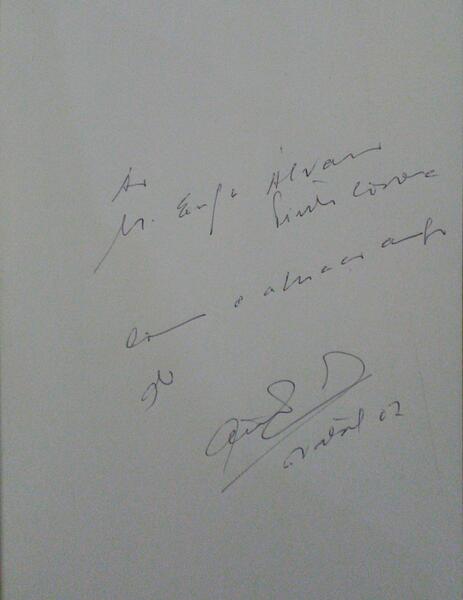 Ao
Sr. Engº Álvaro
Pinto Correia
com o abraço amigo
do
Natal 02